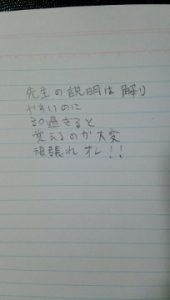 先生の説明は解り
やすいのに
30過ぎると
覚えるのが大変
頑張れオレ!!